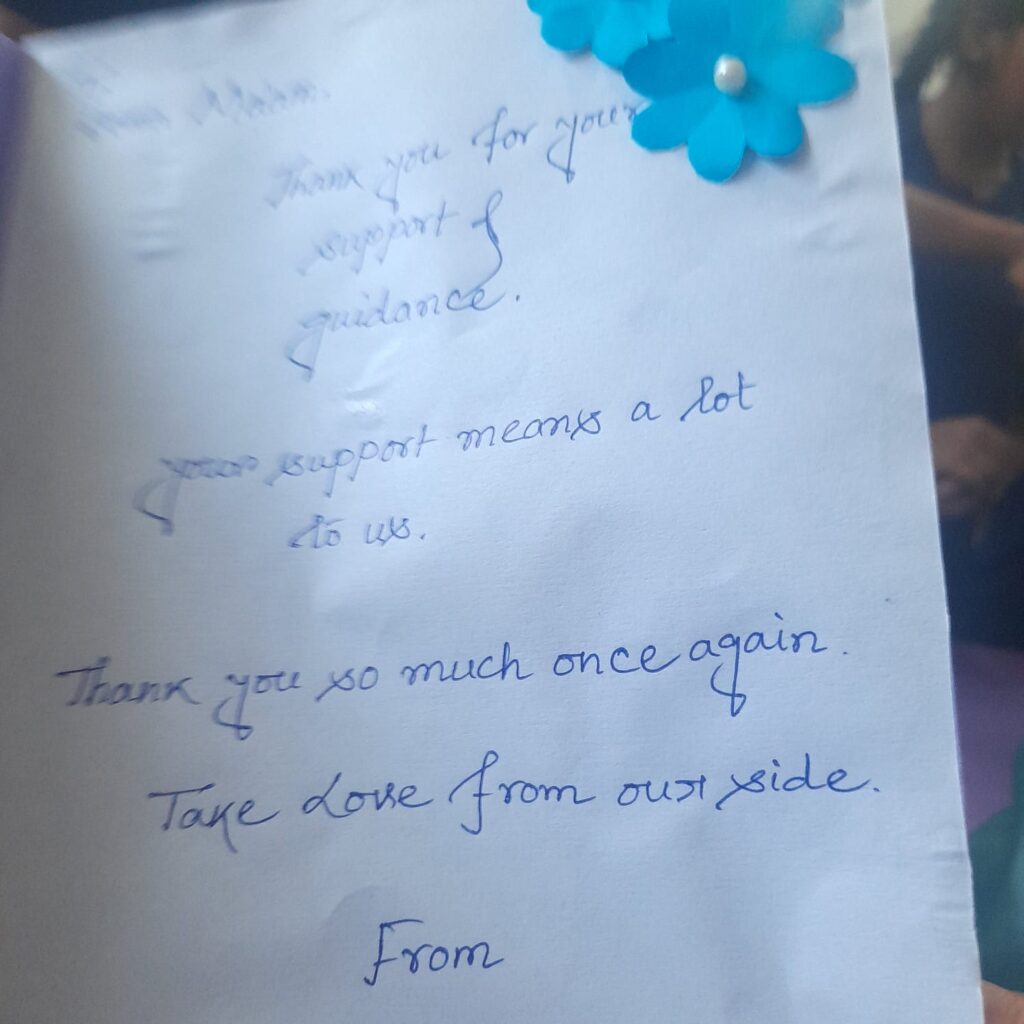 Thank you for your
support &
guidance.
your support means a lot
to us.
Thank you so much once again.
Take Love from our side.
From